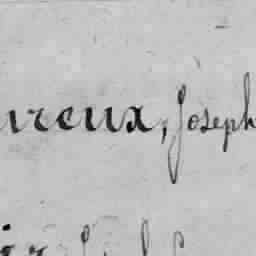 ureux, Joseph